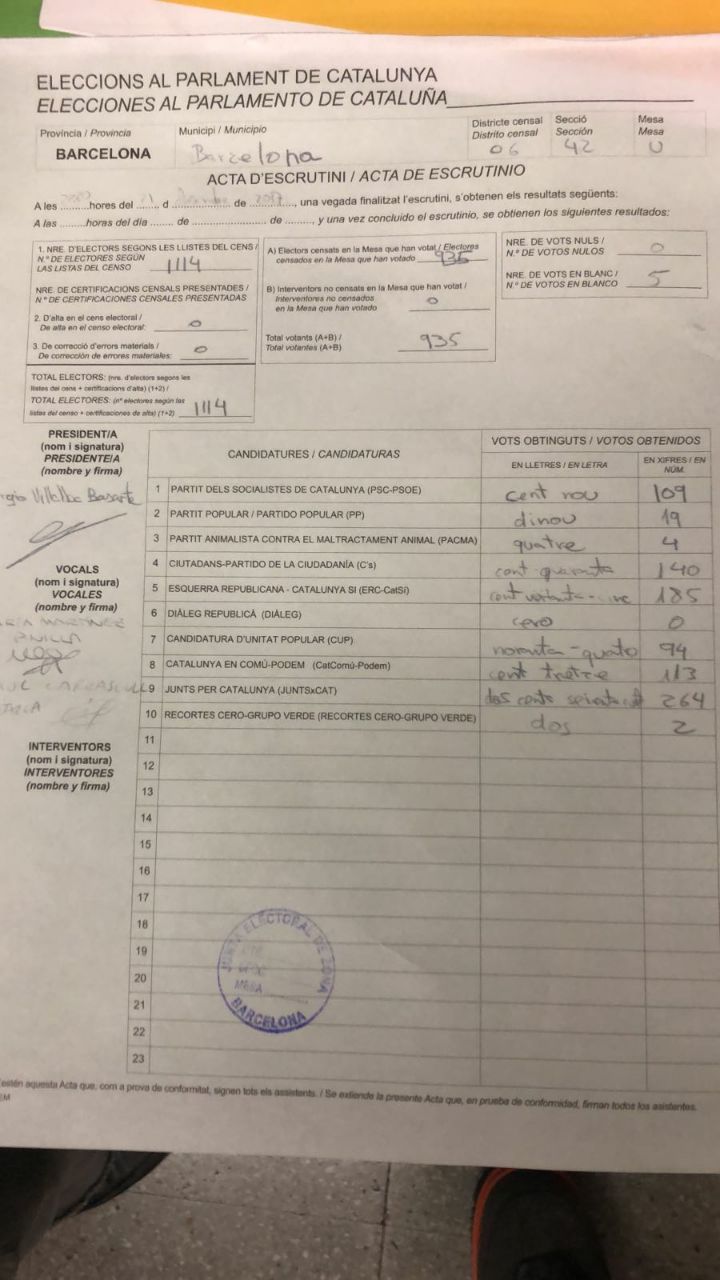 ELECCIONS AL PARLAMENT DE CATALUNYA
ELECCIONES AL PARLAMENTO DE CATALUÑA
Província / Provincia
BARCELONA
Municipi / Municipio
Barcelona
Districte censal
Distrito censal
06
Secció
Sección
42
Mesa
Mesa
U
ACTA D'ESCRUTINI / ACTA DE ESCRUTINIO
A les ........hores del ....... d ................ de ......., una vegada finalitzat l'escrutini, s'obtenen els resultats següents:
A las .........horas del día ....... de ....................... de ........, y una vez concluido el escrutinio, se obtienen los siguientes resultados:
1. NRE. D'ELECTORS SEGONS LES LLISTES DEL CENS /
N.º DE ELECTORES SEGÚN
LAS LISTAS DEL CENSO 1114
NRE. DE CERTIFICACIONS CENSALS PRESENTADES /
N.º DE CERTIFICACIONES CENSALES PRESENTADAS
2. D'alta en el cens electoral /
De alta en el censo electoral: 0
3. De correcció d'errors materials /
De corrección de errores materiales: 0
TOTAL ELECTORS: (nre. d'electors segons les
llistes del cens + certificacions d'alta) (1+2) /
TOTAL ELECTORES: (nº electores según las
listas del censo + certificaciones de alta) (1+2) 1114
A) Electors censats en la Mesa que han votat / Electores
censados en la Mesa que han votado 935
B) Interventors no censats en la Mesa que han votat /
Interventores no censados
en la Mesa que han votado 0
Total votants (A+B) /
Total votantes (A+B) 935
NRE. DE VOTS NULS /
N.º DE VOTOS NULOS 0
NRE. DE VOTS EN BLANC /
N.º DE VOTOS EN BLANCO 5
PRESIDENT/A
(nom i signatura)
PRESIDENTE/A
(nombre y firma)
VOCALS
(nom i signatura)
VOCALES
(nombre y firma)
INTERVENTORS
(nom i signatura)
INTERVENTORES
(nombre y firma)
CANDIDATURES / CANDIDATURAS
VOTS OBTINGUTS / VOTOS OBTENIDOS
EN LLETRES / EN LETRA
EN XIFRES / EN NÚM.
1 PARTIT DELS SOCIALISTES DE CATALUNYA (PSC-PSOE) cent nou 109
2 PARTIT POPULAR / PARTIDO POPULAR (PP) dinou 19
3 PARTIT ANIMALISTA CONTRA EL MALTRACTAMENT ANIMAL (PACMA) quatre 4
4 CIUTADANS-PARTIDO DE LA CIUDADANÍA (C's) cent quaranta 140
5 ESQUERRA REPUBLICANA - CATALUNYA SI (ERC-CatSí) cent 185
6 DIÀLEG REPUBLICÀ (DIÀLEG) cero 0
7 CANDIDATURA D'UNITAT POPULAR (CUP) 94
8 CATALUNYA EN COMÚ-PODEM (CatComú-Podem) cent tretze 113
9 JUNTS PER CATALUNYA (JUNTSxCAT) 264
10 RECORTES CERO-GRUPO VERDE (RECORTES CERO-GRUPO VERDE) dos 2
11
12
13
14
15
16
17
18
19
20
21
22
23
JUNTA ELECTORAL DE ZONA
MESA
BARCELONA
estén aquesta Acta que, com a prova de conformitat, signen tots els assistents. / Se extiende la presente Acta que, en prueba de conformidad, firman todos los asistentes.